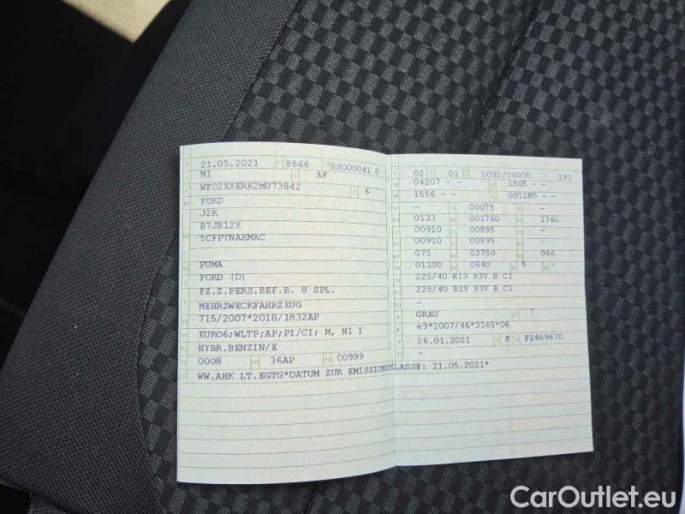 21.05.2021 8566
M1 AF
6
FORD
J2K
B7JB12X
PUMA
FORD (D)
FZ.Z.PERS.BEF.B. 8 SPL.
MEHRZWECKFAHRZEUG
715/2007*2018/1832AP
EURO6;WLTP;AP;PI/CI; M, N1 I
HYBR.BENZIN/E
0008 36AP 00999
WW.AHK LT.EGTG*DATUM ZUR EMISSIONSKLASSE: 21.05.2021*
02 01 0092/06000 191
04207 - - 1805 - -
1556 - - 001280 - -
- 00075 -
0133 001760 1760
00910 00895 -
00910 00895 -
075 03750 066
01100 0640 5 -
225/40 R19 93V B C1
225/40 R19 93V B C1
-
GRAU 7
e9*2007/46*3165*06
26.01.2021 K FZ469670
-
CarOutlet.eu